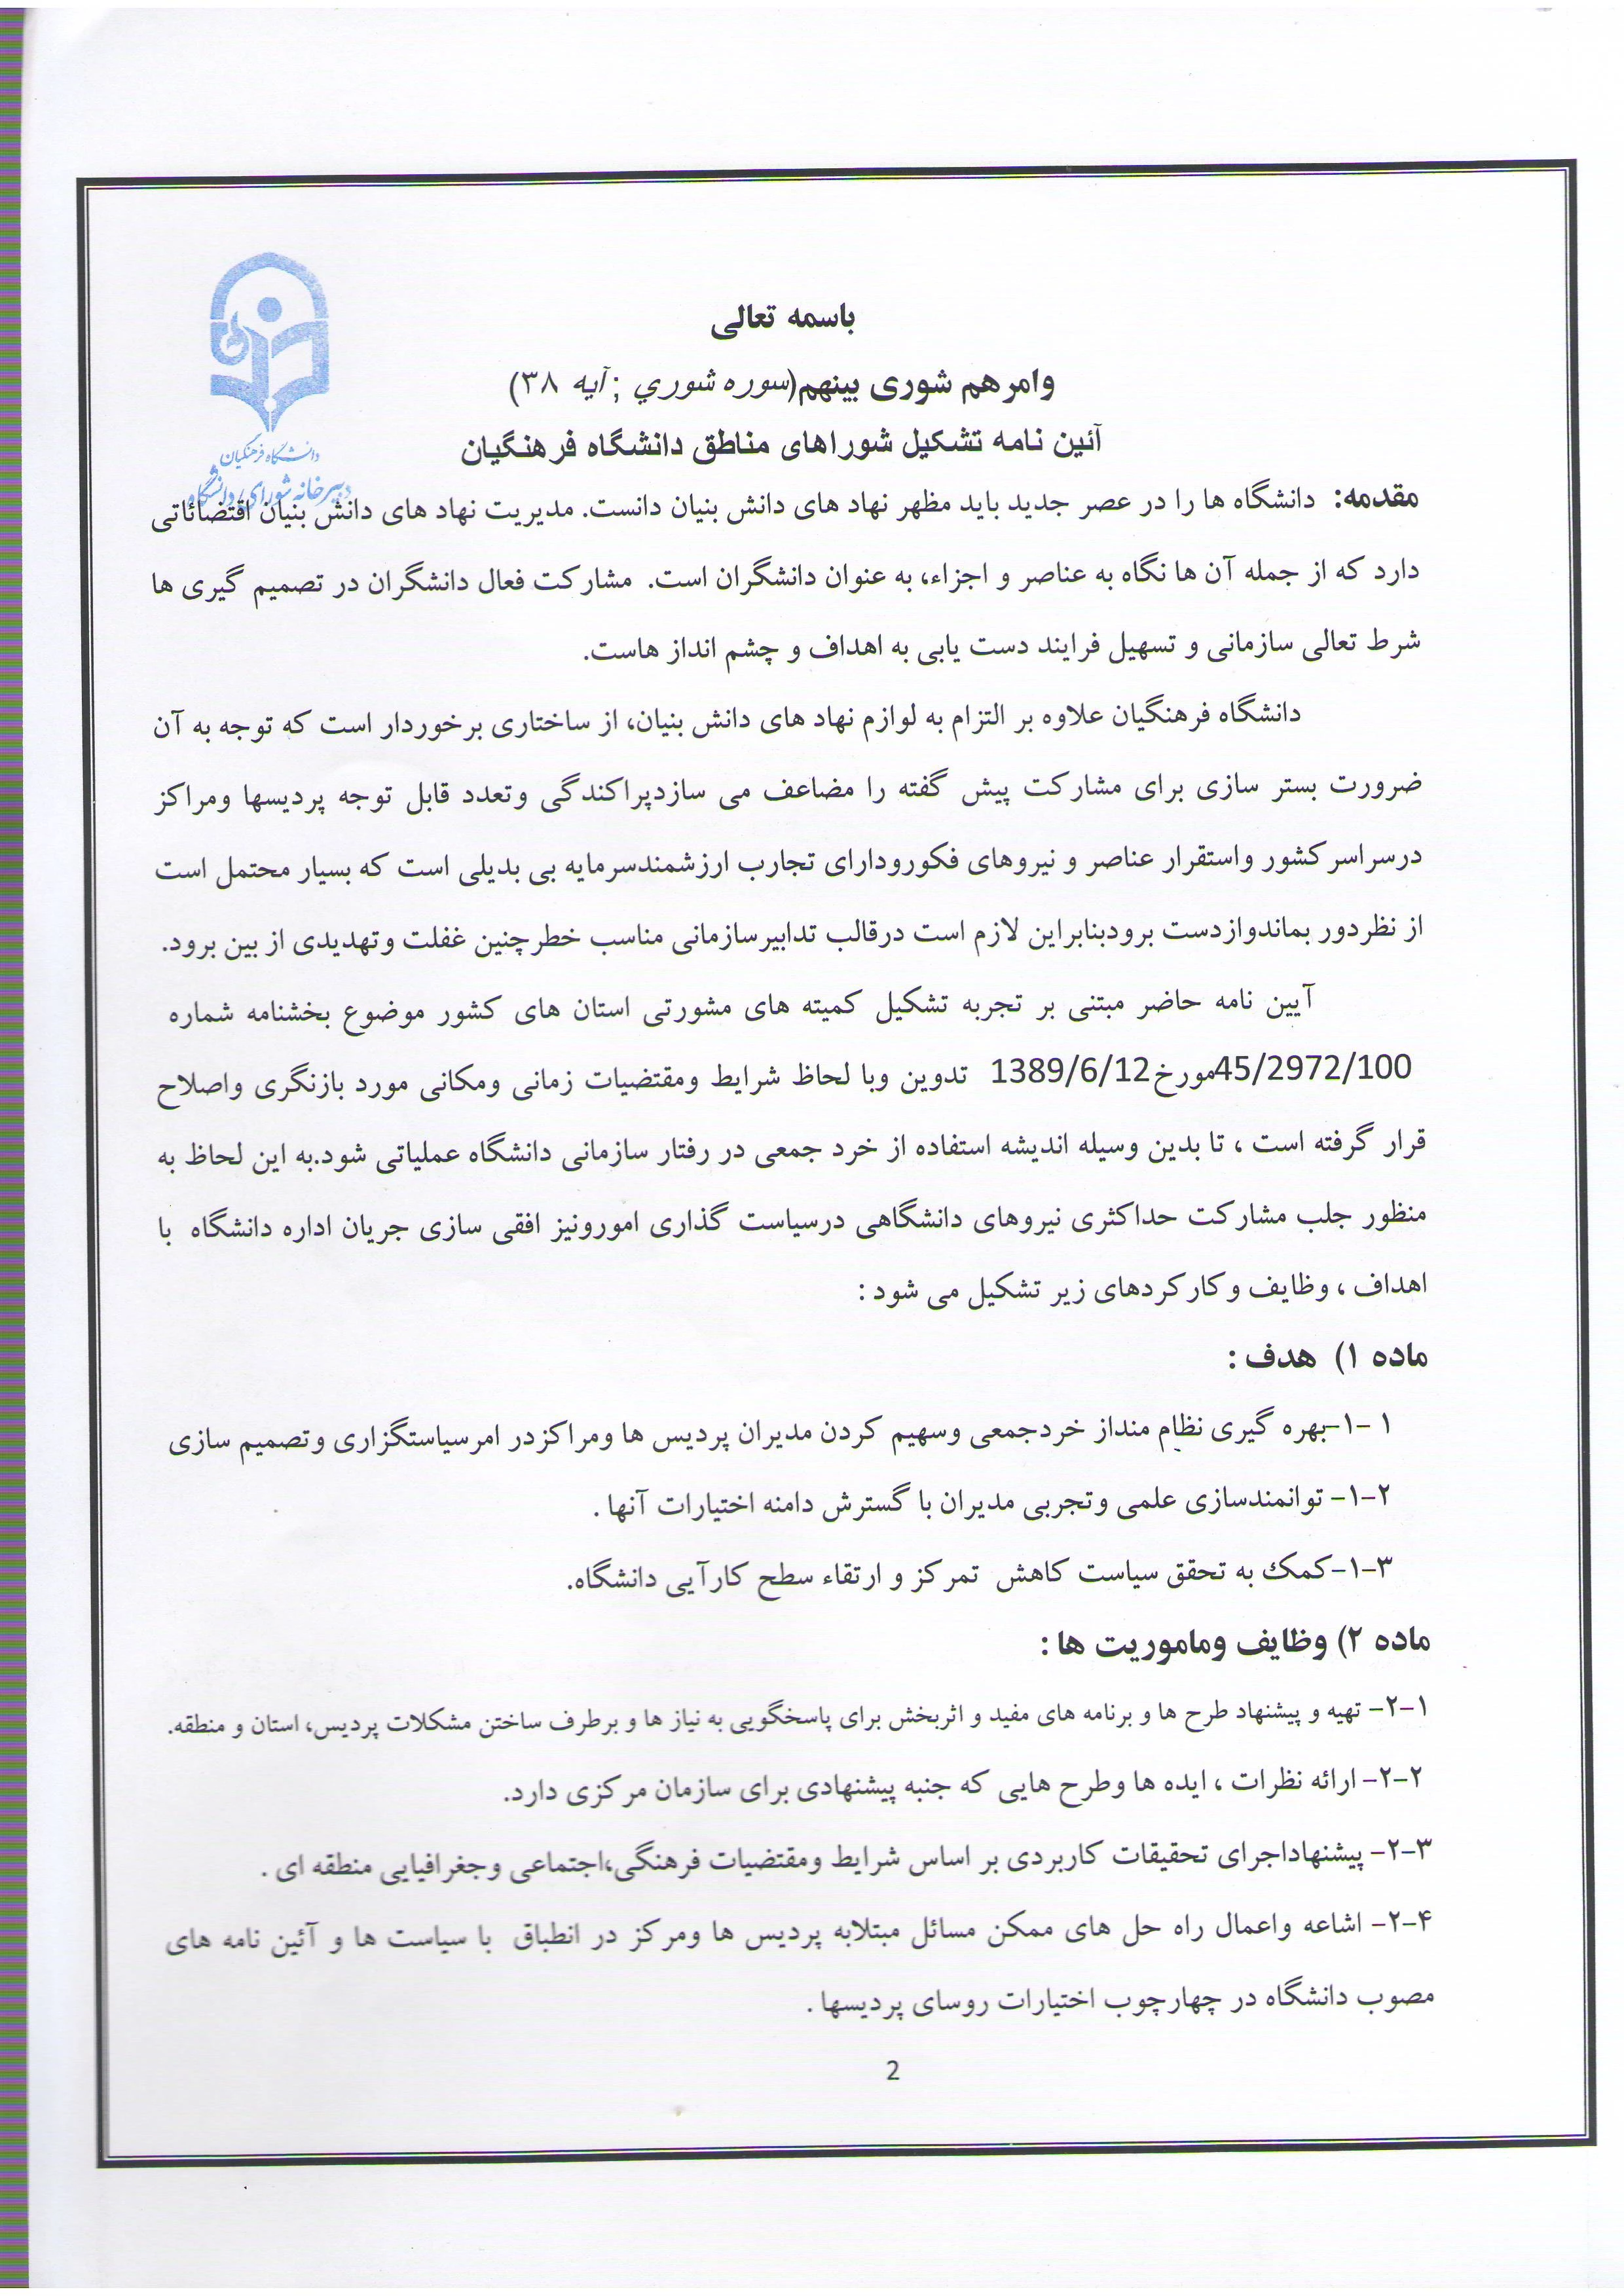 باسمه تعالی
وامرهم شوری بینهم(سوره شوري ;آیه ۳۸)
آئین نامه تشکیل شوراهای مناطق دانشگاه فرهنگیان
دانشگاه فرهنگیان
دبیرخانه شورای دانشگاه
مقدمه: دانشگاه ها را در عصر جدید باید مظهر نهاد های دانش بنیان دانست. مدیریت نهاد های دانش بنیان اقتضائاتی
دارد که از جمله آن ها نگاه به عناصر و اجزاء، به عنوان دانشگران است. مشارکت فعال دانشگران در تصمیم گیری ها
شرط تعالی سازمانی و تسهیل فرایند دست یابی به اهداف و چشم انداز هاست.
دانشگاه فرهنگیان علاوه بر التزام به لوازم نهاد های دانش بنیان، از ساختاری برخوردار است که توجه به آن
ضرورت بستر سازی برای مشارکت پیش گفته را مضاعف می سازدپراکندگی وتعدد قابل توجه پردیسها ومراکز
درسراسر کشور واستقرار عناصر و نیروهای فکورودارای تجارب ارزشمندسرمایه بی بدیلی است که بسیار محتمل است
از نظردور بماندوازدست برودبنابراین لازم است درقالب تدابیرسازمانی مناسب خطرچنین غفلت وتهدیدی از بین برود.
آیین نامه حاضر مبتنی بر تجربه تشکیل کمیته های مشورتی استان های کشور موضوع بخشنامه شماره
45/2972/100مورخ1389/6/12 تدوین وبا لحاظ شرایط ومقتضیات زمانی ومکانی مورد بازنگری واصلاح
قرار گرفته است ، تا بدین وسیله اندیشه استفاده از خرد جمعی در رفتار سازمانی دانشگاه عملیاتی شود.به این لحاظ به
منظور جلب مشارکت حداکثری نیروهای دانشگاهی درسیاست گذاری امورونیز افقی سازی جریان اداره دانشگاه با
اهداف ، وظایف وکارکردهای زیر تشکیل می شود :
ماده ۱) هدف :
۱ -۱-بهره گیری نظام منداز خردجمعی وسهیم کردن مدیران پردیس ها ومراکزدر امرسیاستگزاری وتصمیم سازی
۱-۲- توانمندسازی علمی وتجربی مدیران با گسترش دامنه اختیارات آنها .
۱-۳-کمک به تحقق سیاست کاهش تمرکز و ارتقاء سطح کارآیی دانشگاه.
ماده ۲) وظایف وماموریت ها :
۲-۱- تهیه و پیشنهاد طرح ها و برنامه های مفید و اثربخش برای پاسخگویی به نیاز ها و برطرف ساختن مشکلات پردیس، استان و منطقه.
۲-۲- ارائه نظرات ، ایده ها وطرح هایی که جنبه پیشنهادی برای سازمان مرکزی دارد.
۲-۳- پیشنهاداجرای تحقیقات کاربردی بر اساس شرایط ومقتضیات فرهنگی،اجتماعی وجغرافیایی منطقه ای .
۲-۴- اشاعه واعمال راه حل های ممکن مسائل مبتلابه پردیس ها ومرکز در انطباق با سیاست ها و آئین نامه های
مصوب دانشگاه در چهارچوب اختیارات روسای پردیسها .
2